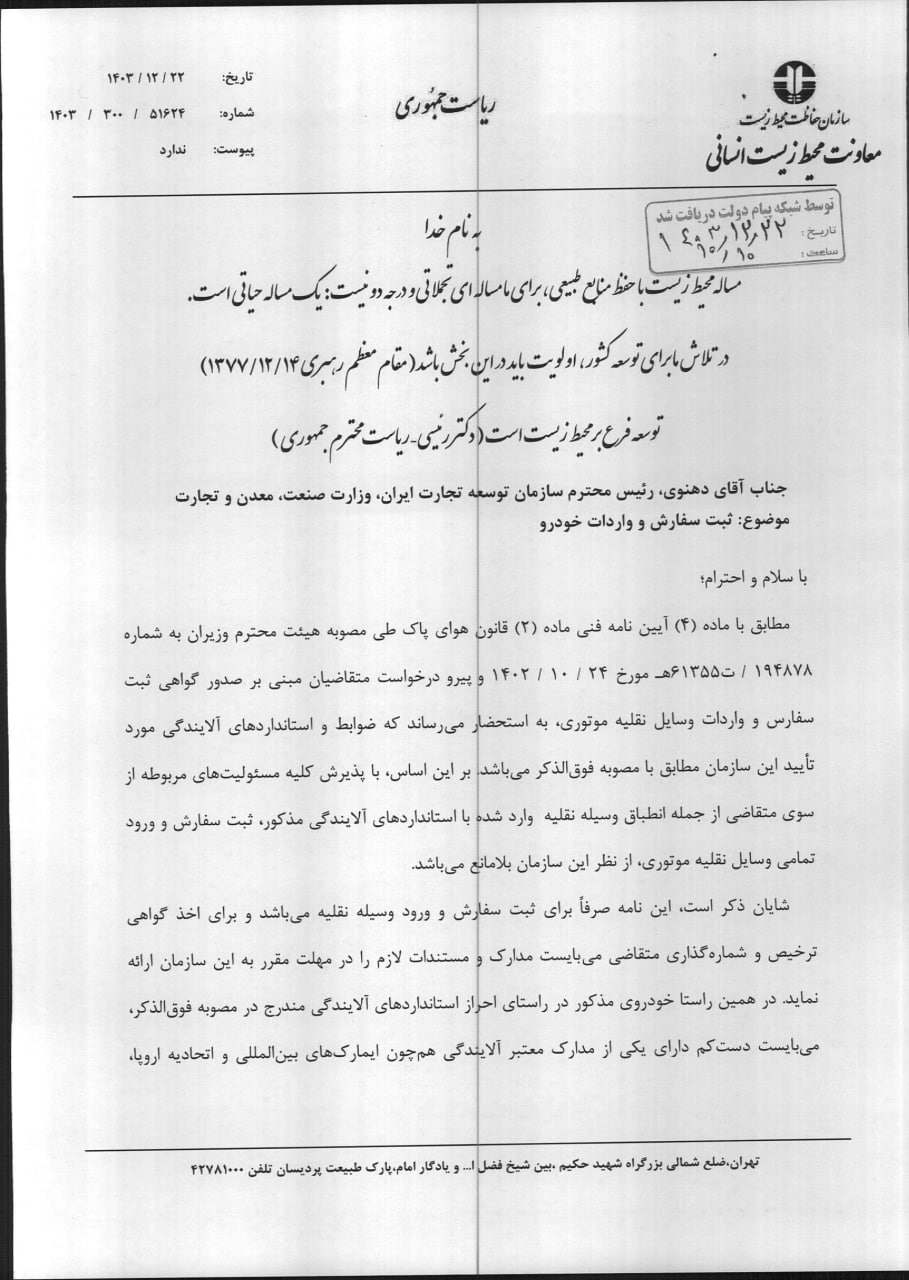 سازمان حفاظت محیط زیست
معاونت محیط زیست انسانی
ریاست جمهوری
تاریخ: ۱۴۰۳/۱۲/۲۲
شماره: ۱۴۰۳ / ۳۰۰ / ۵۱۶۲۴
پیوست: ندارد
توسط شبکه پیام دولت دریافت شد
تاریخ: ۱۴۰۳/۱۲/۲۲
ساعت: ۱۰/۱۰
به نام خدا
مساله محیط زیست با حفظ منابع طبیعی، برای ما مساله ای تجملاتی و درجه دو نیست: یک مساله حیاتی است.
در تلاش ما برای توسعه کشور، اولویت باید در این بخش باشد (مقام معظم رهبری ۱۳۷۷/۱۲/۱۴)
توسعه فرع بر محیط زیست است (دکتر رئیسی- ریاست محترم جمهوری)
جناب آقای دهنوی، رئیس محترم سازمان توسعه تجارت ایران، وزارت صنعت، معدن و تجارت
موضوع: ثبت سفارش و واردات خودرو
با سلام و احترام؛
مطابق با ماده (۴) آیین نامه فنی ماده (۲) قانون هوای پاک طی مصوبه هیئت محترم وزیران به شماره
۱۹۴۸۷۸ / ت۶۱۳۵۵هـ مورخ ۲۴ / ۱۰ / ۱۴۰۲ و پیرو درخواست متقاضیان مبنی بر صدور گواهی ثبت
سفارس و واردات وسایل نقلیه موتوری، به استحضار می‌رساند که ضوابط و استانداردهای آلایندگی مورد
تأیید این سازمان مطابق با مصوبه فوق‌الذکر می‌باشد. بر این اساس، با پذیرش کلیه مسئولیت‌های مربوطه از
سوی متقاضی از جمله انطباق وسیله نقلیه وارد شده با استانداردهای آلایندگی مذکور، ثبت سفارش و ورود
تمامی وسایل نقلیه موتوری، از نظر این سازمان بلامانع می‌باشد.
شایان ذکر است، این نامه صرفاً برای ثبت سفارش و ورود وسیله نقلیه می‌باشد و برای اخذ گواهی
ترخیص و شماره‌گذاری متقاضی می‌بایست مدارک و مستندات لازم را در مهلت مقرر به این سازمان ارائه
نماید. در همین راستا خودروی مذکور در راستای احراز استانداردهای آلایندگی مندرج در مصوبه فوق‌الذکر،
می‌بایست دست‌کم دارای یکی از مدارک معتبر آلایندگی هم‌چون ایمارک‌های بین‌المللی و اتحادیه اروپا،
تهران،ضلع شمالی بزرگراه شهید حکیم ،بین شیخ فضل ا... و یادگار امام،پارک طبیعت پردیسان تلفن ۴۲۷۸۱۰۰۰